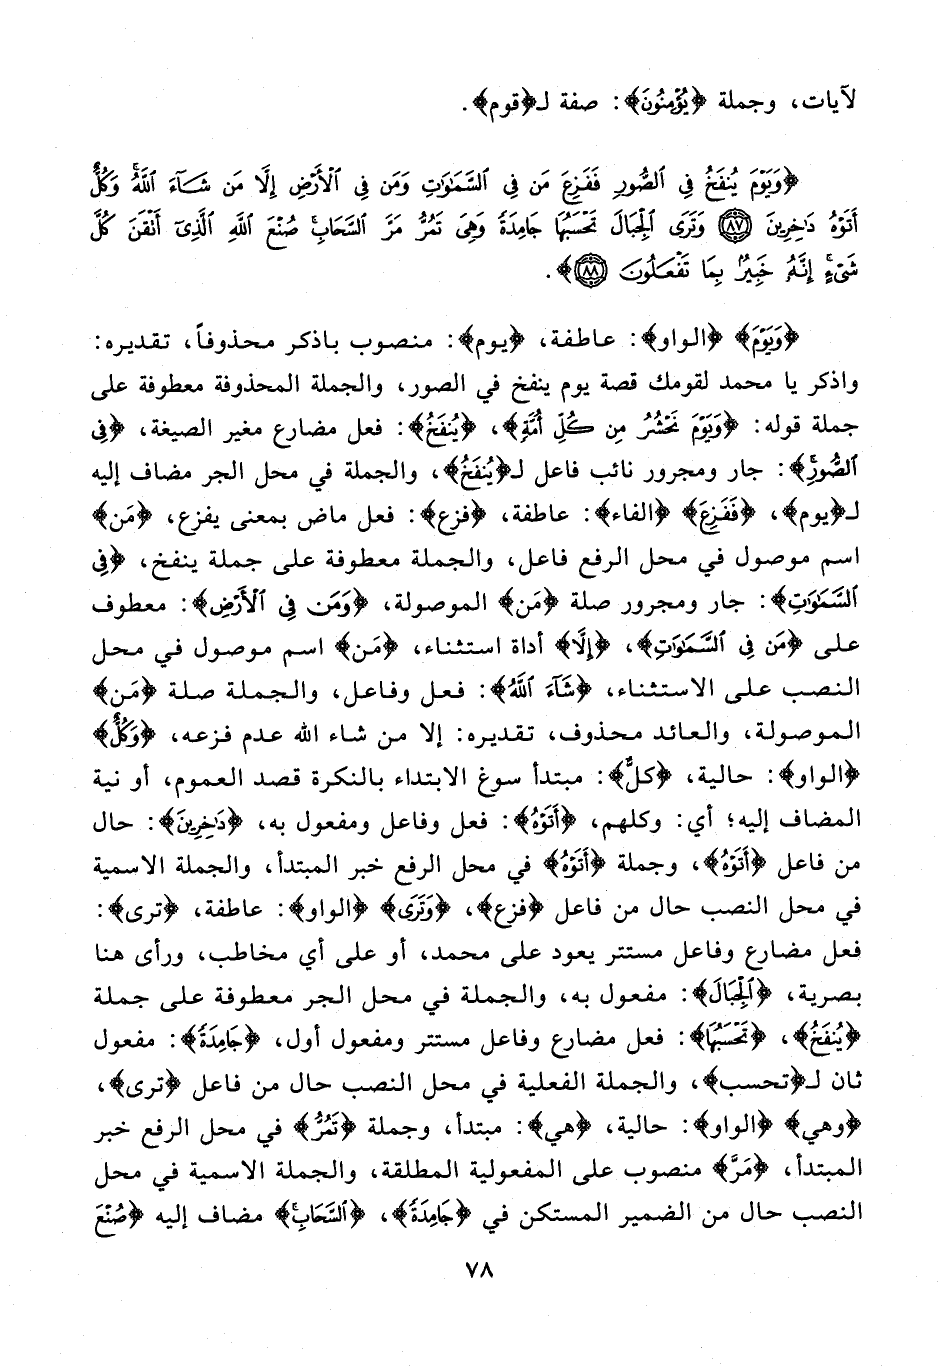 لآيات، وجملة ﴿يُؤْمِنُونَ﴾: صفة لـ﴿قوم﴾.
﴿وَيَوْمَ يُنفَخُ فِي ٱلصُّورِ فَفَزِعَ مَن فِي ٱلسَّمَٰوَٰتِ وَمَن فِي ٱلْأَرْضِ إِلَّا مَن شَآءَ ٱللَّهُ ۚ وَكُلٌّ
أَتَوْهُ دَٰخِرِينَ ﴿٨٧﴾ وَتَرَى ٱلْجِبَالَ تَحْسَبُهَا جَامِدَةً وَهِيَ تَمُرُّ مَرَّ ٱلسَّحَابِ ۚ صُنْعَ ٱللَّهِ ٱلَّذِيٓ أَتْقَنَ كُلَّ
شَيْءٍ ۚ إِنَّهُۥ خَبِيرٌۢ بِمَا تَفْعَلُونَ ﴿٨٨﴾﴾.
﴿وَيَوْمَ﴾ ﴿الواو﴾: عاطفة، ﴿يوم﴾: منصوب باذكر محذوفاً، تقديره:
واذكر يا محمد لقومك قصة يوم ينفخ في الصور، والجملة المحذوفة معطوفة على
جملة قوله: ﴿وَيَوْمَ نَحْشُرُ مِن كُلِّ أُمَّةٍ﴾، ﴿يُنفَخُ﴾: فعل مضارع مغير الصيغة، ﴿فِي
ٱلصُّورِ﴾: جار ومجرور نائب فاعل لـ﴿يُنفَخُ﴾، والجملة في محل الجر مضاف إليه
لـ﴿يوم﴾، ﴿فَفَزِعَ﴾ ﴿الفاء﴾: عاطفة، ﴿فزع﴾: فعل ماض بمعنى يفزع، ﴿مَن﴾
اسم موصول في محل الرفع فاعل، والجملة معطوفة على جملة ينفخ، ﴿فِي
ٱلسَّمَٰوَٰتِ﴾: جار ومجرور صلة ﴿مَن﴾ الموصولة، ﴿وَمَن فِي ٱلْأَرْضِ﴾: معطوف
على ﴿مَن فِي ٱلسَّمَٰوَٰتِ﴾، ﴿إِلَّا﴾ أداة استثناء، ﴿مَن﴾ اسم موصول في محل
النصب على الاستثناء، ﴿شَآءَ ٱللَّهُ﴾: فعل وفاعل، والجملة صلة ﴿مَن﴾
الموصولة، والعائد محذوف، تقديره: إلا من شاء الله عدم فزعه، ﴿وَكُلٌّ﴾
﴿الواو﴾: حالية، ﴿كلٌ﴾: مبتدأ سوغ الابتداء بالنكرة قصد العموم، أو نية
المضاف إليه؛ أي: وكلهم، ﴿أَتَوْهُ﴾: فعل وفاعل ومفعول به، ﴿دَٰخِرِينَ﴾: حال
من فاعل ﴿أَتَوْهُ﴾، وجملة ﴿أَتَوْهُ﴾ في محل الرفع خبر المبتدأ، والجملة الاسمية
في محل النصب حال من فاعل ﴿فزع﴾، ﴿وَتَرَى﴾ ﴿الواو﴾: عاطفة، ﴿ترى﴾:
فعل مضارع وفاعل مستتر يعود على محمد، أو على أي مخاطب، ورأى هنا
بصرية، ﴿ٱلْجِبَالَ﴾: مفعول به، والجملة في محل الجر معطوفة على جملة
﴿يُنفَخُ﴾، ﴿تَحْسَبُهَا﴾: فعل مضارع وفاعل مستتر ومفعول أول، ﴿جَامِدَةً﴾: مفعول
ثان لـ﴿تحسب﴾، والجملة الفعلية في محل النصب حال من فاعل ﴿ترى﴾،
﴿وهي﴾ ﴿الواو﴾: حالية، ﴿هي﴾: مبتدأ، وجملة ﴿تَمُرُّ﴾ في محل الرفع خبر
المبتدأ، ﴿مَرَّ﴾ منصوب على المفعولية المطلقة، والجملة الاسمية في محل
النصب حال من الضمير المستكن في ﴿جَامِدَةً﴾، ﴿ٱلسَّحَابِ﴾ مضاف إليه ﴿صُنْعَ
٧٨